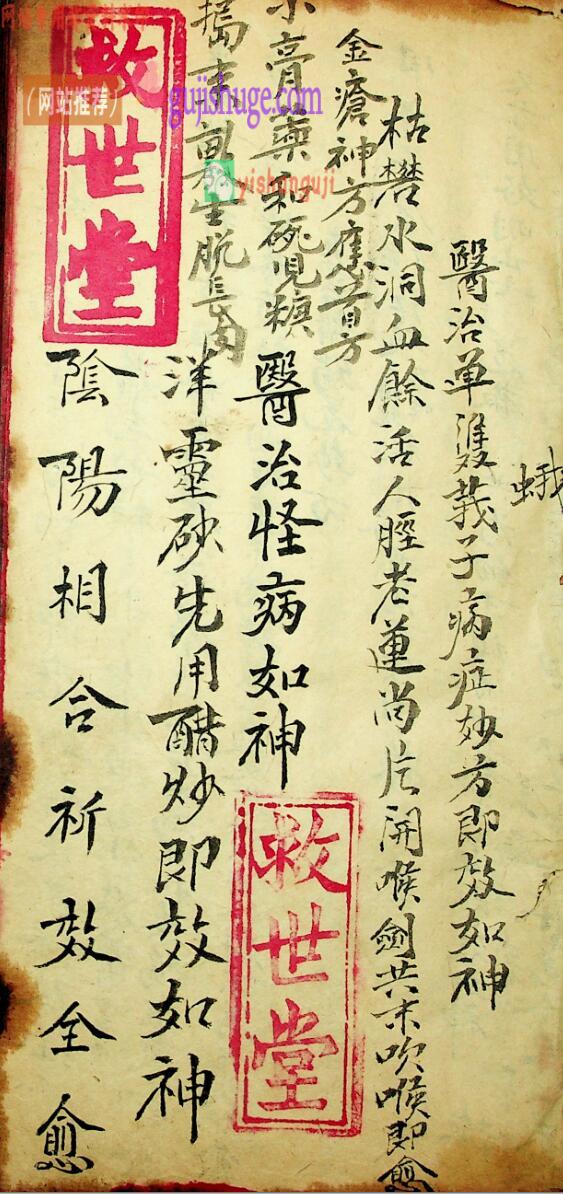 醫治单雙莪子病症妙方即效如神
蛾
枯礬水洞血餘活人脛老蓮尚片開喉劍共末吹喉即愈
金瘡神方應昔日方
膏藥和硯児糠
搗末
生脱長肉
醫治怪病如神
洋靈砂先用醋炒即效如神
陰陽相合祈效全愈
救世堂
救世堂
（网站推荐）
gujishuge.com
yishenguji